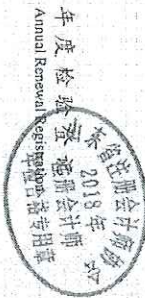 年度检验登记
Annual Renewal Registration
省注册会计师协
2018年
注册会计师
年检合格专用章